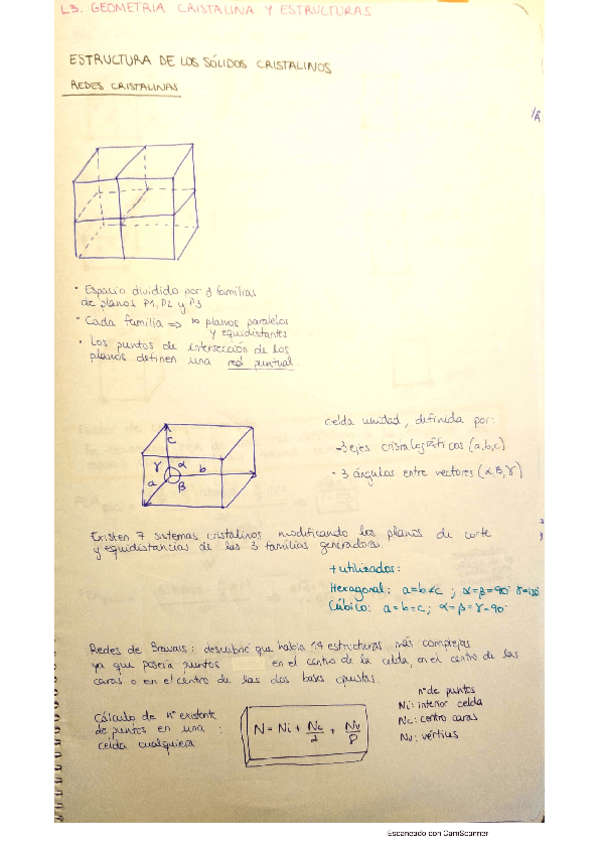 L3. GEOMETRIA CRISTALINA Y ESTRUCTURAS
ESTRUCTURA DE LOS SÓLIDOS CRISTALINOS
REDES CRISTALINAS
· Espacio dividido por 3 familias
de planos P1, P2 y P3
· Cada familia => ∞ planos paralelos
y equidistantes
· Los puntos de intersección de los
planos definen una red puntual.
c
γ α b
a β
celda unidad, definida por:
3 ejes cristalográficos (a,b,c)
· 3 ángulos entre vectores (α,β,γ)
Existen 7 sistemas cristalinos modificando los planos de corte
y equidistancias de las 3 familias generadoras.
+ utilizados:
Hexagonal: a=b≠c ; α=β=90° γ=120°
Cúbico: a=b=c; α=β=γ=90°
Redes de Bravais: descubrió que había 14 estructuras más complejas
ya que poseía puntos en el centro de la celda, en el centro de las
caras o en el centro de las dos bases opuestas.
Cálculo de nº existente
de puntos en una :
celda cualquiera
N = Ni + Nc/2 + Nv/8
nº de puntos
Ni: interior celda
Nc: centro caras
Nv: vértices
Escaneado con CamScanner